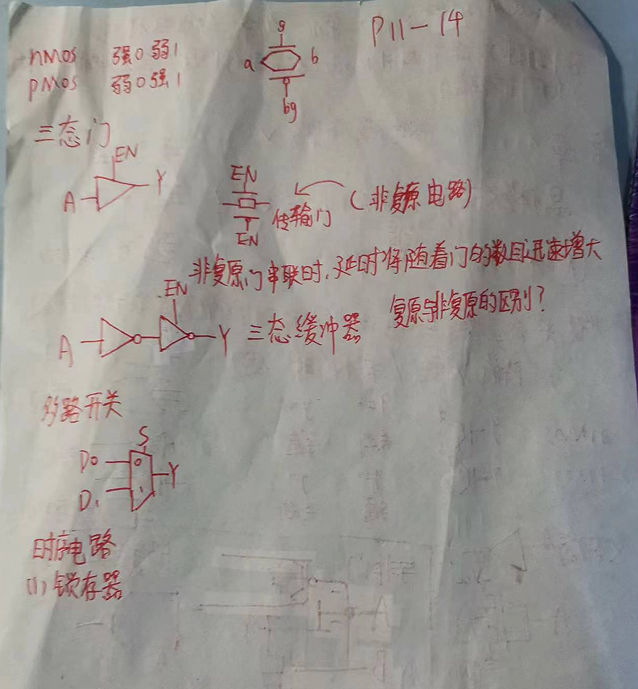 P11-14
nMos 强0弱1
pMos 弱0强1
g
a b
bg
三态门
EN
A Y
EN
传输门 (非复原电路)
EN
非复原门串联时，延时将随着门的数目迅速增大
EN
A Y 三态缓冲器
复原与非复原的区别？
多路开关
S
D0 0
Y
D1 1
时序电路
(1) 锁存器